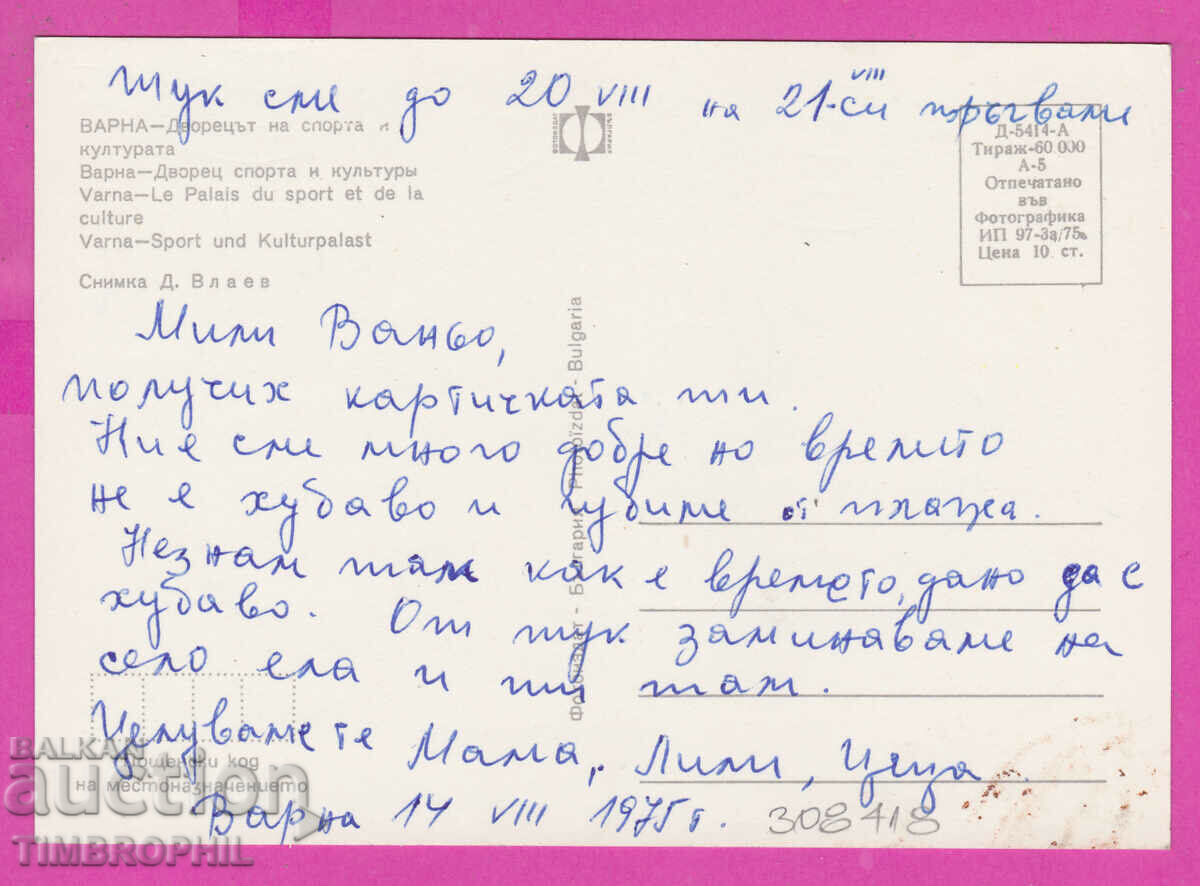 Тук сме до 20 VIII на 21-си VIII тръгваме
ВАРНА—Дворецът на спорта и
културата
Варна—Дворец спорта и культуры
Varna—Le Palais du sport et de la
culture
Varna—Sport und Kulturpalast
Снимка Д. Влаев
ФОТОИЗДАТ
БЪЛГАРИЯ
Д-5414-А
Тираж-60 000
А-5
Отпечатано
във
Фотографика
ИП 97-3а/75
Цена 10 ст.
Мили Ваньо,
получих картичката ти.
Ние сме много добре но времето
не е хубаво и губиме от плажа.
Незнам там как е времето, дано да е
хубаво. От тук заминаваме на
село ела и ти там.
Целуваме те Мама, Лили, Цеца.
Варна 14 VIII 1975 г.
308418
Фотоиздат - България Photoizdat - Bulgaria
Пощенски код
на местоназначението
BALKAN
auction
TIMBROPHIL